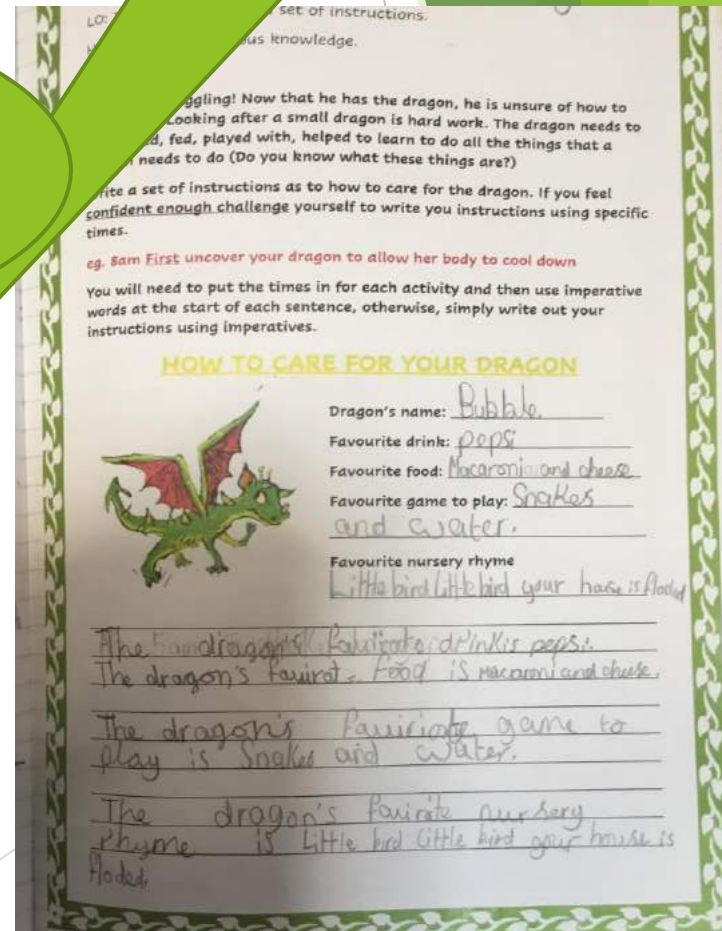 LO: set of instructions.
us knowledge.
ggling! Now that he has the dragon, he is unsure of how to
Looking after a small dragon is hard work. The dragon needs to
d, fed, played with, helped to learn to do all the things that a
needs to do (Do you know what these things are?)
rite a set of instructions as to how to care for the dragon. If you feel
confident enough challenge yourself to write you instructions using specific
times.
eg. 8am First uncover your dragon to allow her body to cool down
You will need to put the times in for each activity and then use imperative
words at the start of each sentence, otherwise, simply write out your
instructions using imperatives.
HOW TO CARE FOR YOUR DRAGON
Dragon's name: Bubble.
Favourite drink: pepsi
Favourite food: Macaroni and cheese
Favourite game to play: Snakes
and water.
Favourite nursery rhyme
Little bird little bird your hase is floded
The dragon's drink is pepsi.
The dragon's favirat food is Macaroni and cheese.
The dragon's game to
play is Snakes and water.
The dragon's favirate nursery
rhyme is Little bird little bird your house is
floded.